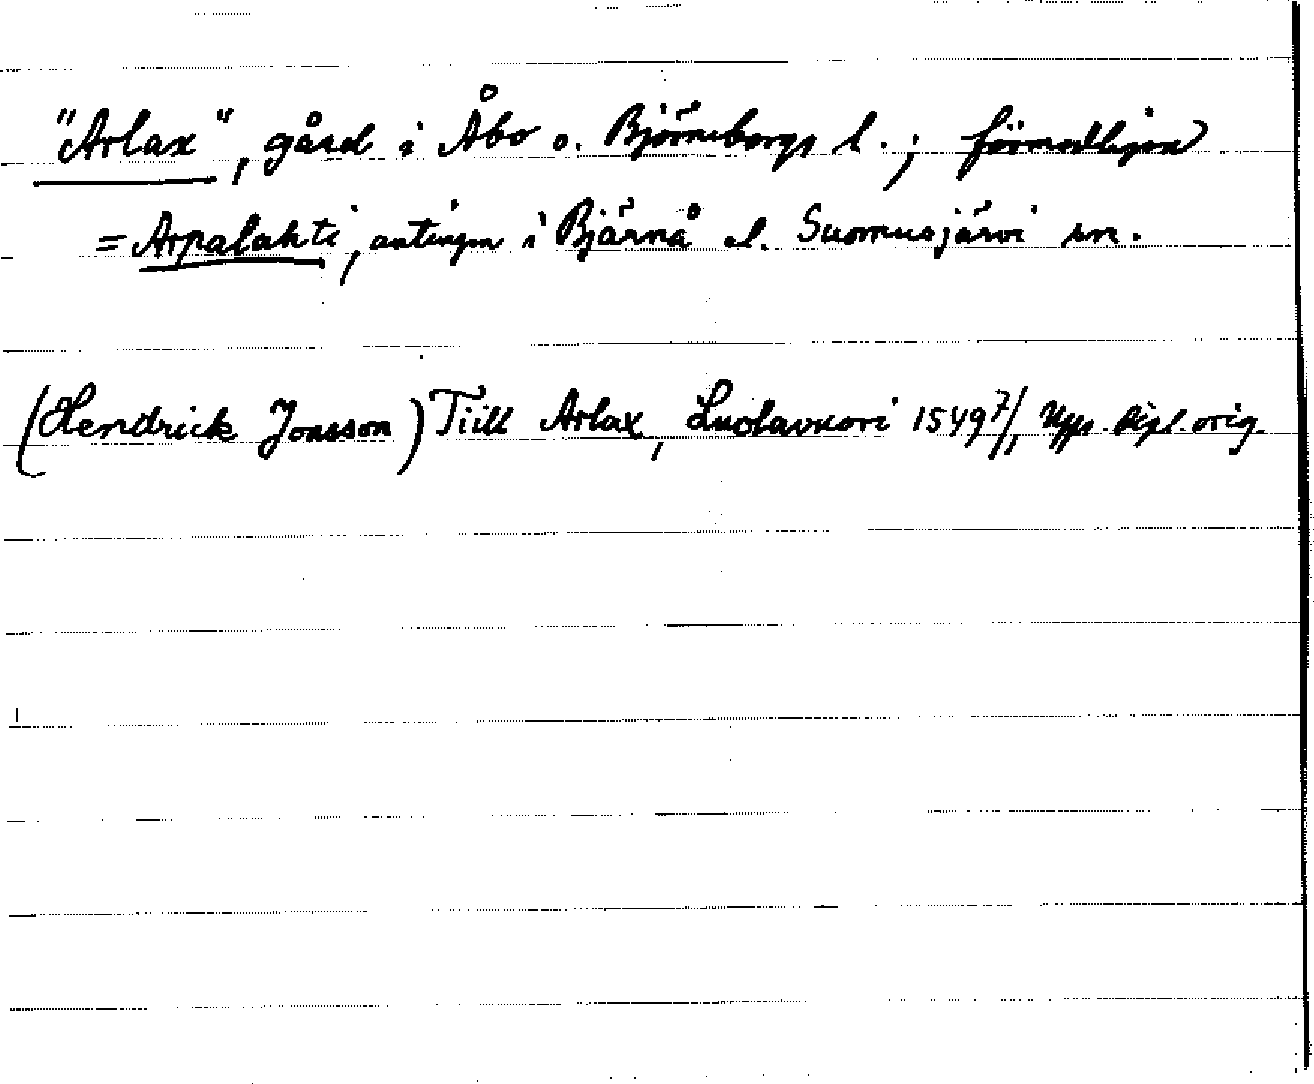 "Arlax", gård i Åbo o. Björneborgs l.; förmodligen
= Arpalahti, antingen i Bjärnå el. Suomusjärvi sn.
(Hendrick Jonsson) Tiill Arlax, 1549 7/, Upps. dipl. orig